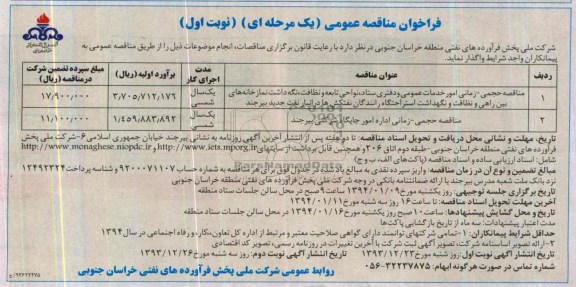 فراخوان مناقصه عمومی (یک مرحله ای) (نوبت اول)
شرکت ملی پخش فرآورده های نفتی منطقه خراسان جنوبی درنظر دارد با رعایت قانون برگزاری مناقصات، انجام موضوعات ذیل را از طریق مناقصه عمومی به
پیمانکاران واجد شرایط واگذار نماید.
ردیف عنوان مناقصه مدت اجرای کار برآورد اولیه (ریال) مبلغ سپرده تضمین شرکت در مناقصه (ریال)
۱ مناقصه حجمی-زمانی امور خدمات عمومی ودفتری ستاد،نواحی تابعه و نظافت،نگه داشت نمازخانه های بین راهی و نظافت و نگهداشت استراحتگاه رانندگان نفتکش ها در انبار نفت جدید بیرجند یک‌سال شمسی ۳/۷۰۵/۷۱۲/۱۷۶ ۱۷/۹۰۰/۰۰۰
۲ مناقصه حجمی -زمانی اداره امور جایگاه بیرجند یک‌سال شمسی ۱/۴۵۹/۸۸۳/۸۹۲ ۱۱/۱۰۰/۰۰۰
تاریخ، مهلت و نشانی محل دریافت و تحویل اسناد مناقصه: تا دو هفته پس از انتشار آخرین آگهی روزنامه به نشانی بیرجند خیابان جمهوری اسلامی ۶-شرکت ملی پخش
فرآورده های نفتی منطقه خراسان جنوبی- طبقه دوم اتاق ۲۰۶ و همچنین قابل برداشت از سایتهای http://iets.mporg.ir و http://www.monaghese.niopdc.ir
شامل: اسناد ارزیابی ساده و اسناد مناقصه (پاکت‌های الف، ب و ج)
مبالغ تضمین و نوع آن در زمان مناقصه: واریز سپرده نقدی به مبالغ یاد شده در جدول فوق برای هر مناقصه به شماره حساب ۹۳۰۰۰۷۱۱۰۷ و شناسه پرداخت ۱۲۴۹۲۳۲۴
نزد بانک ملت شعبه مدرس بیرجند یا ارائه ضمانتنامه بانکی در وجه شرکت ملی پخش فرآورده های نفتی منطقه خراسان جنوبی
تاریخ برگزاری جلسه توجیهی: روز یکشنبه مورخ ۱۳۹۴/۰۱/۰۹ ساعت ۹ صبح در محل سالن جلسات ستاد منطقه
آخرین مهلت تحویل اسناد مناقصه: تا ساعت ۱۶ روز سه شنبه مورخ ۱۳۹۴/۰۱/۱۱
تاریخ و محل گشایش پیشنهادها: ساعت ۱۰ صبح روز یکشنبه مورخ ۱۳۹۴/۰۱/۱۶ در محل سالن جلسات ستاد منطقه
مدت اعتبار پیشنهادات: سه ماه از تاریخ بازگشایی پاکت‌ها
حداقل شرایط پیمانکاران: ۱-تمامی شرکتهای توانمند دارای گواهی صلاحیت معتبر و مرتبط از اداره کل تعاون،کار، و رفاه اجتماعی در سال ۱۳۹۴
۲-ارائه تصویر اساسنامه شرکت، تصویر آگهی ثبت شرکت با آخرین تغییرات در روزنامه رسمی، تصویر کد اقتصادی
تاریخ انتشار آگهی نوبت اول: روز شنبه مورخ ۱۳۹۳/۱۲/۲۳ تاریخ انتشار آگهی نوبت دوم: روز سه شنبه مورخ ۱۳۹۳/۱۲/۲۶
شماره تماس در صورت هرگونه ابهام: ۳۲۲۳۷۸۷۵-۰۵۶
روابط عمومی شرکت ملی پخش فرآورده های نفتی خراسان جنوبی